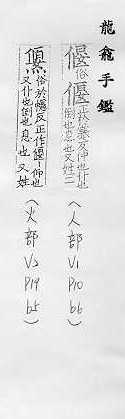 龍龕手鑑
俗偃正於反仰也仆也
倒也息也又姓二
(人部 V1 P10 b6)
俗於反正作偃仰也
又仆也倒也息也又姓
(火部 V2 P19 b5)